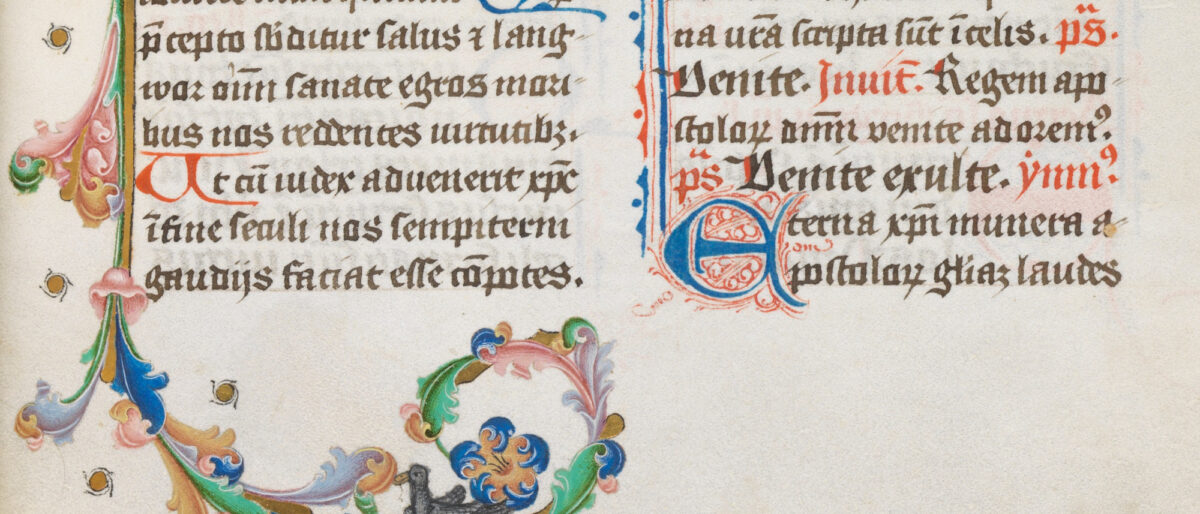 p̄cepto sb̄ditur salus ⁊ lang-
wor om̄im sanate egros mori-
bus nos reddentes uirtutibꝫ.
Ut cū iudex aduenerit xp̄c
ī fine seculi nos sempiterni
gaudijs faciat esse cōpotes.
na ur̄a scripta sūt ī celis. ps̄.
Venite. Inuit̄. Regem apo-
stoloꝝ dn̄m venite adoremꝰ.
ps̄ Venite exulte. ẏmnꝰ
Eterna xp̄i munera a-
postoloꝝ gl̄iaz laudes